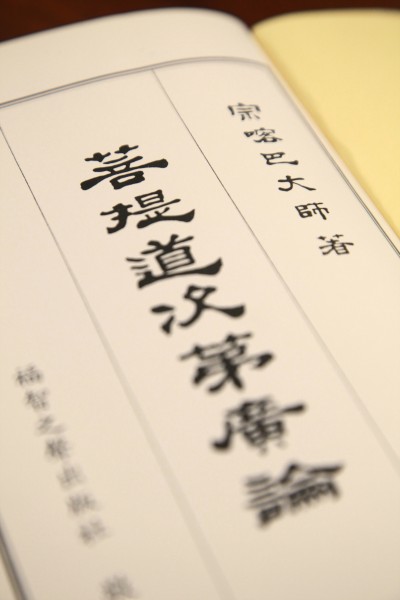 宗喀巴大師著
菩提道次第廣論
福智之聲出版社